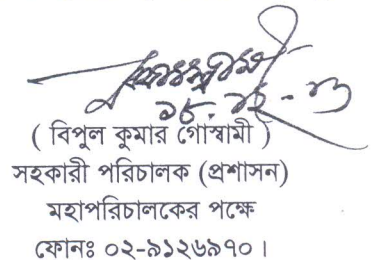 ( বিপুল কুমার গোস্বামী )
সহকারী পরিচালক (প্রশাসন)
মহাপরিচালকের পক্ষে
ফোনঃ ০২-৯১২৬৯৭০।